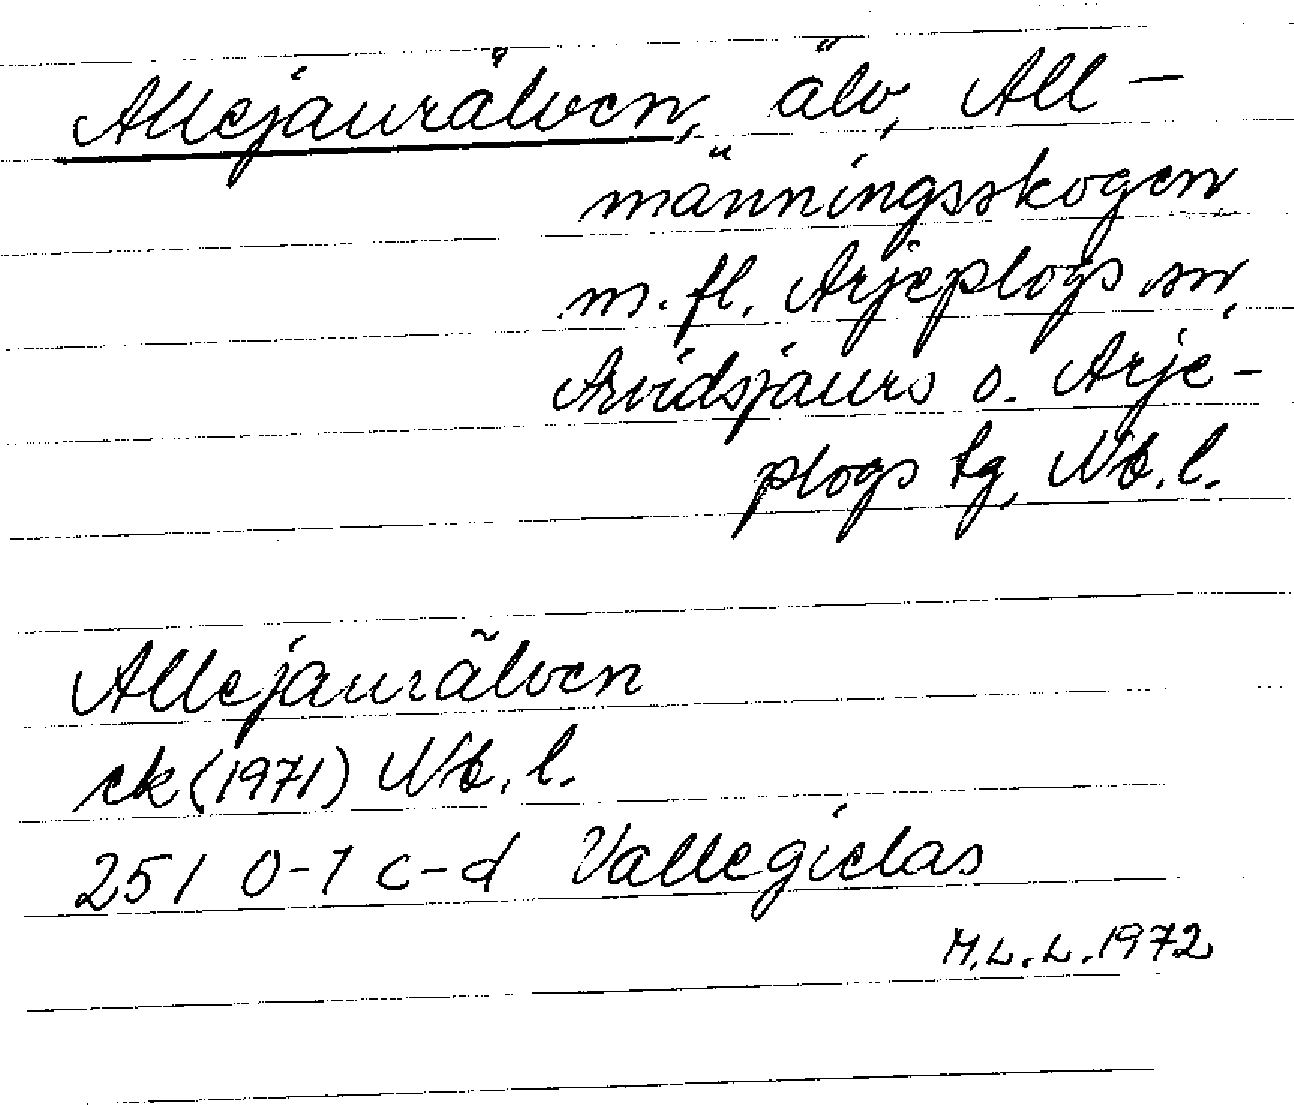 Allejaurälven, älv, All-
männingsskogen
m.fl. Arjeplogs sn,
Arvidsjaurs o. Arje-
plogs tg, Nb.l.
Allejaurälven
ek (1971) Nb.l.
25 I 0-1 c-d Vallegielas
M.L.L. 1972